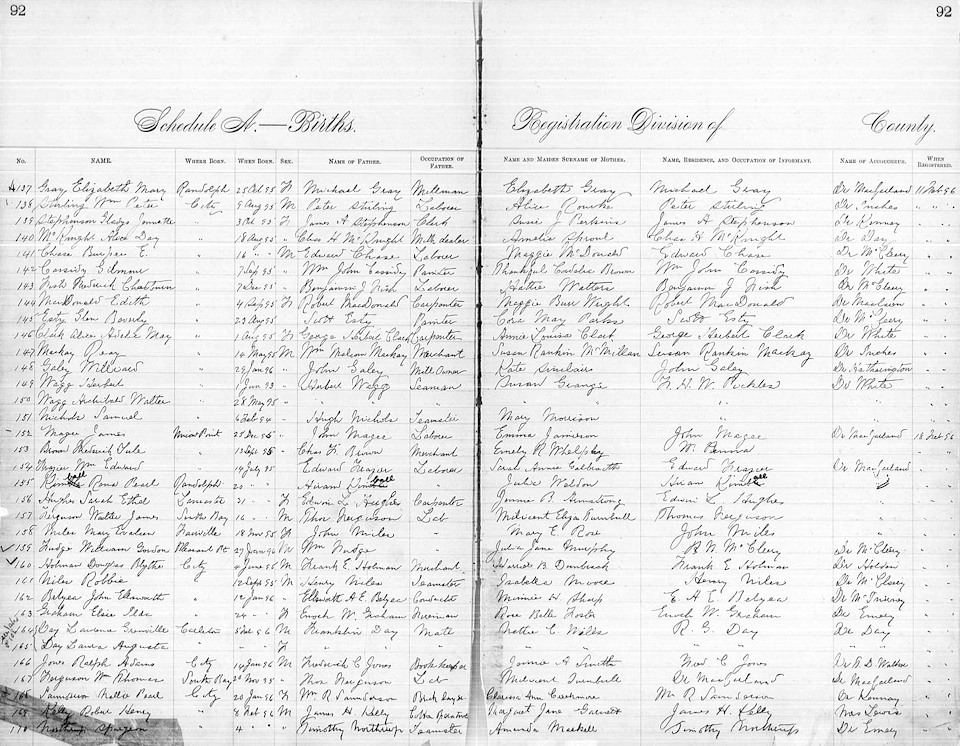 92
92
Schedule A.—Births.
Registration Division of County.
No. NAME. WHERE BORN. WHEN BORN. SEX. NAME OF FATHER. OCCUPATION OF FATHER. NAME AND MAIDEN SURNAME OF MOTHER. NAME, RESIDENCE, AND OCCUPATION OF INFORMANT. NAME OF ACCOUCHEUR. WHEN REGISTERED.
137 Gray Elizabeth Mary Randolph 25 Oct 95 F Michael Gray Millman Elizabeth Gray Michael Gray Dr MacFarland 11 Feb 96
138 Stirling Wm Peter City 9 Aug 95 M Peter Stirling Laborer Alice Peter Stirling Dr Inches " " "
139 Stephenson Gladys 3 Oct 95 F James A Stephenson Clerk Susie J Perkins James A Stephenson Dr Kinney " "
140 McKnight Alice Day " 18 Aug 95 " Chas H McKnight Milk dealer Amelia Sproul Chas H McKnight Dr Day " "
141 Chase Burpee E. " 16 " " M Edward Chase Laborer Maggie McDonald Edward Chase Dr McCleery " "
142 Cassidy Edmour " 7 Sep 95 " Wm John Cassidy Painter Thankful Brown Wm John Cassidy Dr White " "
143 Nish Frederick " 7 Dec 95 " Benjamin J Nish Laborer Hattie Watters Benjamin J Nish Dr McCleery " "
144 MacDonald Edith " 4 Sep 95 F Robert MacDonald Carpenter Maggie Burr Wright Robert MacDonald " "
145 Esty Glen Beverly " 23 Aug 95 Scott Esty Painter Cora May Parks Scott Esty Dr McCleery " "
146 Clark Alice Adelia May " 1 Aug 95 F George Herbert Clark Carpenter Annie Louisa Clark George Herbert Clark Dr White " "
147 Mackay " 14 May 95 M Wm Malcom Mackay Merchant Susan Rankin McMillan Susan Rankin Mackay Dr Inches " "
148 Galey William " 29 Jan 96 " John Galey Mill Owner Kate Sinclair John Galey Dr Hetherington " "
149 Wagg Herbert " 1 Jun 93 " Herbert Wagg Seaman Susan Grange W. H. W. Pickles Dr White " "
150 Wagg Archibald Walter " 28 May 95 " " " " " "
151 Nichols Samuel " 6 Feb 94 " Hugh Nichols Teamster Mary Morrison " "
152 Magee James Union Point 25 Dec 95 " John Magee Laborer Emma Jameson John Magee Dr MacFarland 18 Feb 96
153 Brown Frederick Yale " 13 Sept 95 " Chas F. Brown Merchant Emely R. Whelpley W. " "
154 Frazier Wm Edward " 14 July 95 " Edward Frazier Laborer Sarah Annie Galbraith Edward Frazier Dr MacFarland " "
155 Kimball Rena Pearl Randolph 20 " Hiram Kimball Julia Weldon Hiram Kimball " "
156 Hughes Sarah Ethel Lancaster 21 " F Edwin L Hughes Carpenter Jennie B. Armstrong Edwin L Hughes " "
157 Ferguson Walter James South Bay 16 " M Thos Ferguson Lab Milicent Eliza Turnbull Thomas Ferguson " "
158 Miles Mary Evaleen Fairville 18 Nov 95 F John Miles " Mary E. Rose John Miles " "
159 Fudge William Gordon Pleasant Pt 27 Jan 96 M Wm Fudge " Julia Jane Murphy R. W. McCleery Dr McCleery " "
160 Holman Douglas Blythe City 4 June 95 M Frank E. Holman Merchant Harriet B. Frank E Holman Dr Holden " "
161 Niles Robbie " 12 Sept 95 M Henry Niles Teamster Isabella Moore Henry Niles Dr McCleery " "
162 Belyea John Ellsworth " 12 Jan 96 " Ellsworth A. E. Belyea Conductor Minnie H Sharp E A E Belyea Dr McInerney " "
163 Graham Elsie " 24 " F Enoch W. Graham Fireman Rose Belle Foster Enoch W. Graham Dr Emery " "
164 Day Lawrence Grenville Carleton 5 Feb 96 M Franklin Day Mate Nettie C Wills R. G. Day Dr Day " "
165 Day Laura Augusta " " F " " " " " "
166 Jones Ralph Adams City 14 Jan 96 M Frederick C Jones Book keeper Jennie A Smith Fred C Jones Dr " "
167 Ferguson Wm Thomas South Bay 20 Nov 95 " Thos Ferguson Lab Milicent Turnbull Dr MacFarland Dr MacFarland " "
168 Saunderson Nella Pearl City 20 Jan 96 F Wm R Saunderson Brick layer Clarissa Ann Wm R Saunderson Dr Kinney " "
169 Kelly Robert Henry " 8 Feb 96 M James H. Kelly Cotton Operative Margaret Jane Garnett James H. Kelly Mrs Lewis " "
170 Northrup Spurgeon " 4 " " Timothy Northrup Teamster Amanda Maskell Timothy Northrup Dr Emery " "